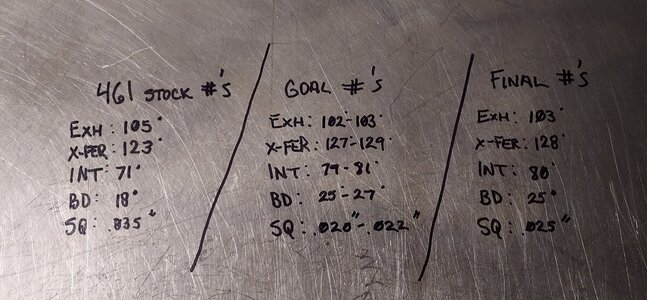 461 STOCK #'S
EXH: 105°
X-FER: 123°
INT: 71°
BD: 18°
SQ: .035"
GOAL #'S
EXH: 102°-103°
X-FER: 127-129°
INT: 79-81°
BD: 25°-27°
SQ: .020"-.022"
FINAL #'S
EXH: 103°
X-FER: 128°
INT: 80°
BD: 25°
SQ: .025"